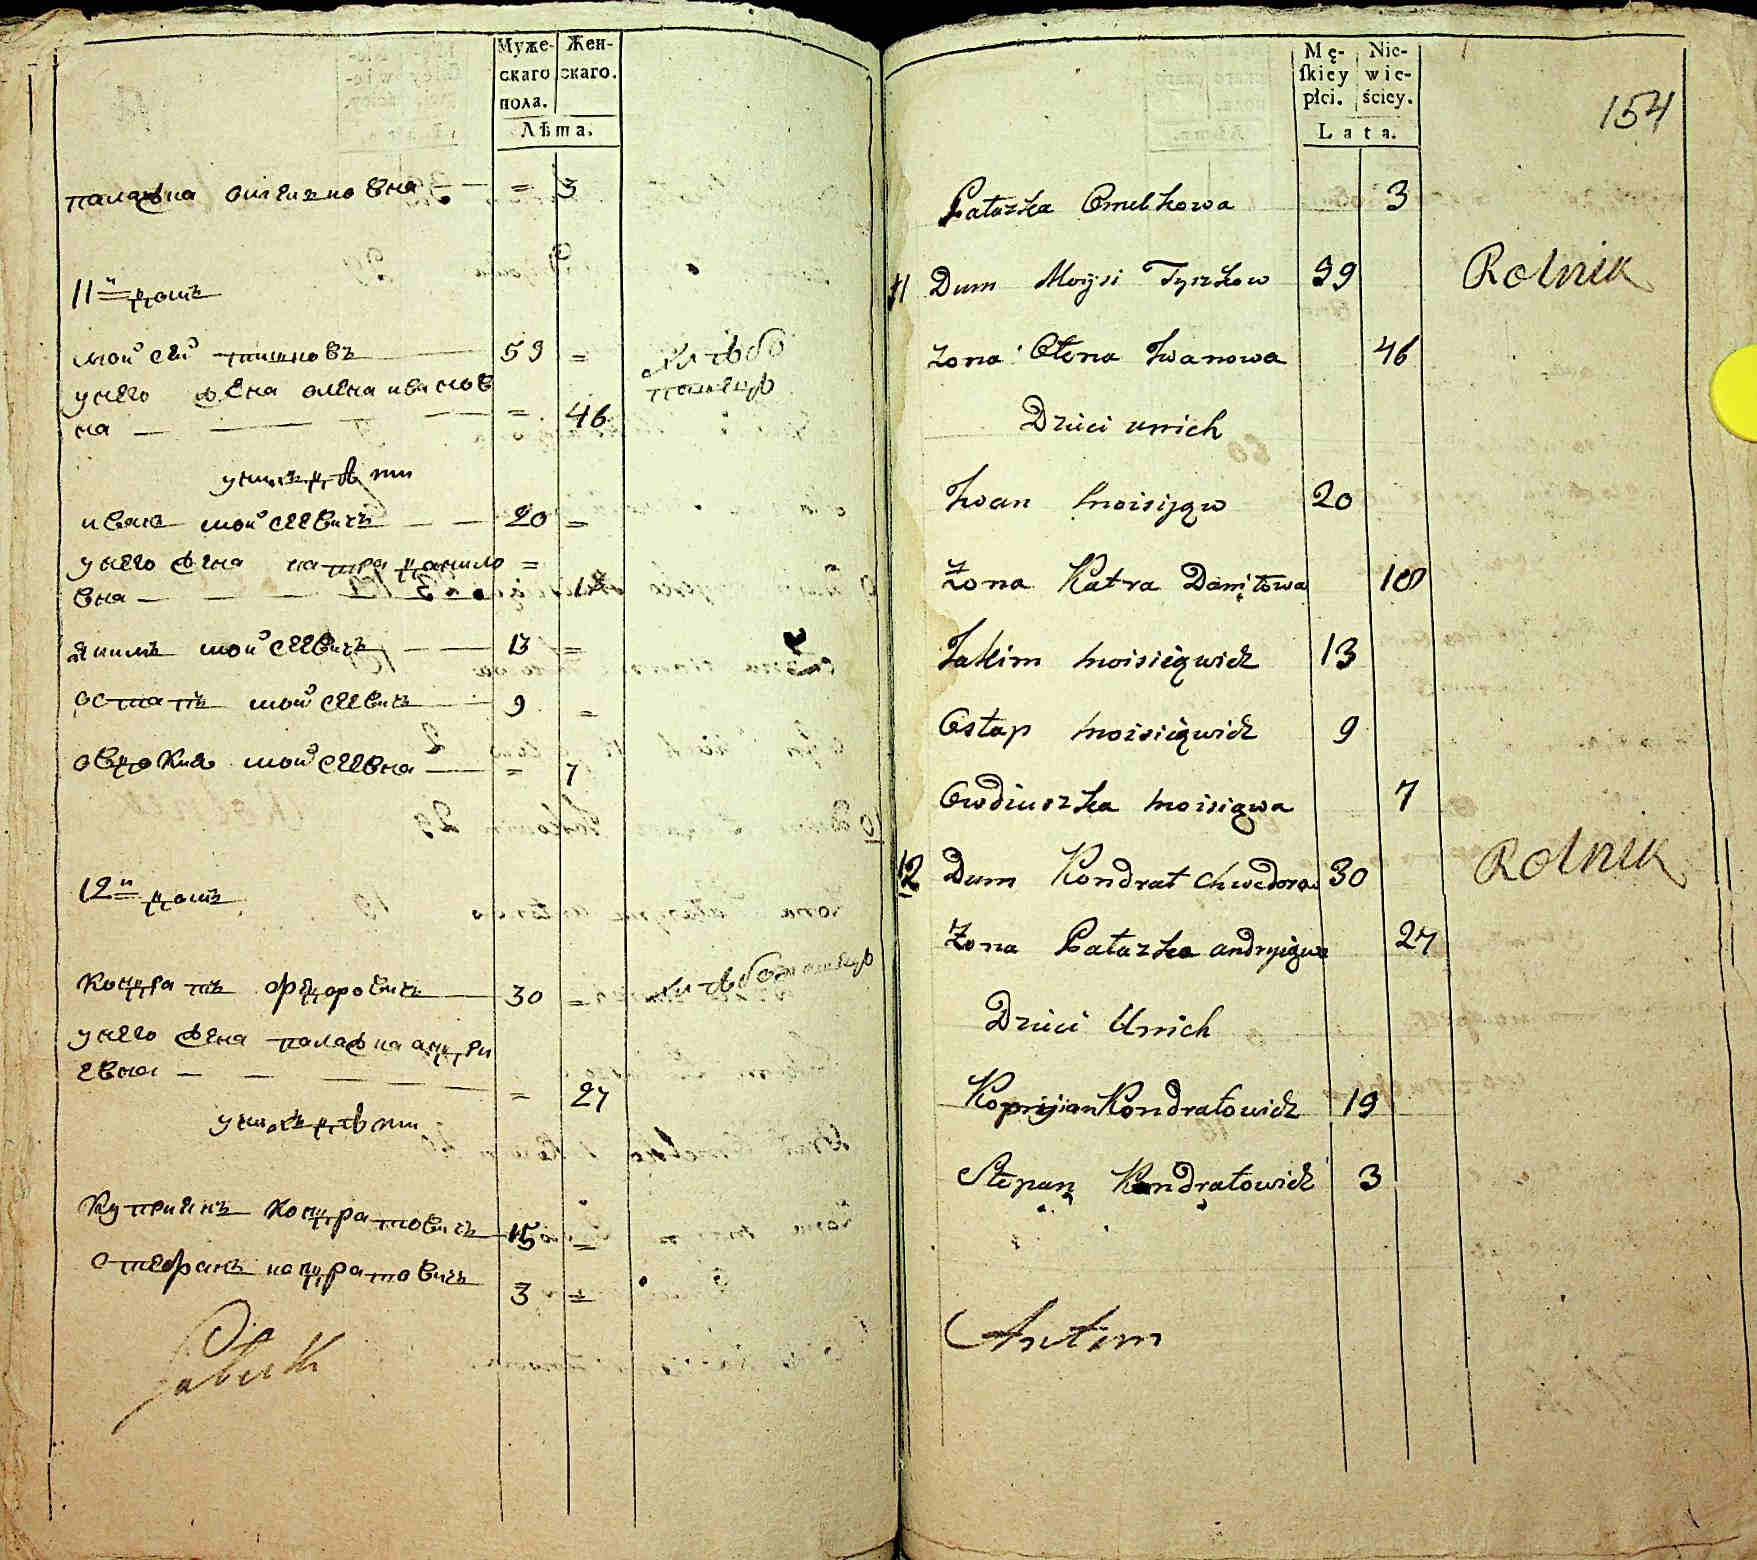 Муже-
скаго
пола.
Жен-
скаго.
Лѣта.
палажка омельяновна = 3
11й домъ
мойсей тишковъ 59 = хлѣбо
пашецъ
у него жена олена иванов
на = 46
у нихъ дѣти
иванъ мойсеевичъ 20 =
у него жена катра данило =
вна 18
якимъ мойсеевичъ 13 =
остапъ мойсеевичъ 9 =
овдокия мойсеевна = 7
12й домъ
Кондратъ федоровичъ 30 = хлѣбопашецъ
у него жена палажка андри
евна = 27
у нихъ дѣти
Куприянъ кондратовичъ 15 =
стефанъ кондратовичъ 3 =
Mę-
ſkiey
płci.
Nie-
wie-
ściey.
Lata.
154
Pałazka Omelkowa 3
11 Dum Moysi Tyszkow 39 Rolnik
zona Ołena Iwanowa 46
Dzieci unich
Iwan Moisijow 20
Zona Katra Daniłowa 18
Jakim Moisieiowicz 13
Ostap Moisieiowicz 9
Owdiuszka Moisiowa 7
12 Dum Kondrat Chwedorow 30 Rolnik
Zona Pałazka andryiowa 27
Dzieci Unich
Kopryian Kondratowicz 19
Stepan Kondratowicz 3
Antim